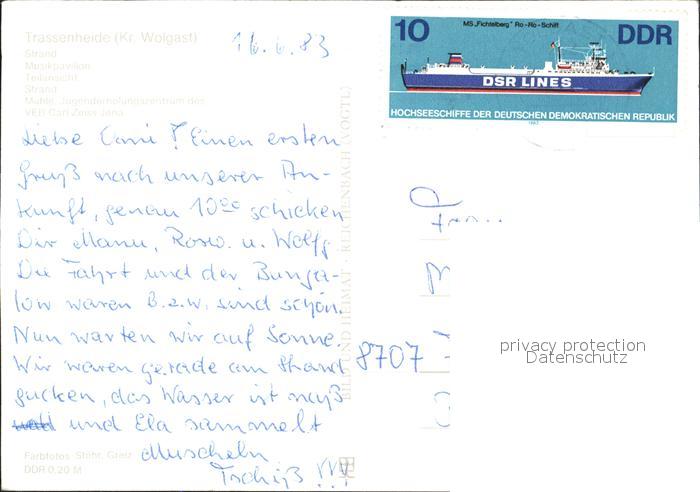 Trassenheide (Kr. Wolgast)
Strand
Musikpavillon
Teilansicht
Strand
Mühle, Jugenderholungszentrum des
VEB Carl Zeiss Jena
16.6.83
Liebe Omi! Einen ersten
Gruß nach unserer An-
kunft, genau 10⁰⁰ schicken
Dir Manu, Rosw. u. Wolfg.
Die Fahrt und der Bunga-
low waren b.z.w. sind schön.
Nun warten wir auf Sonne.
Wir waren gerade am Strand
gucken, das Wasser ist naß
und Ela sammelt
Muscheln.
Tschüß!!!
Farbfotos: Stöhr, Greiz
DDR 0,20 M
BILD UND HEIMAT · REICHENBACH (VOGTL)
10 MS „Fichtelberg" Ro-Ro-Schiff DDR
DSR LINES
HOCHSEESCHIFFE DER DEUTSCHEN DEMOKRATISCHEN REPUBLIK
1982
Fam..
M
8707 -
privacy protection
Datenschutz